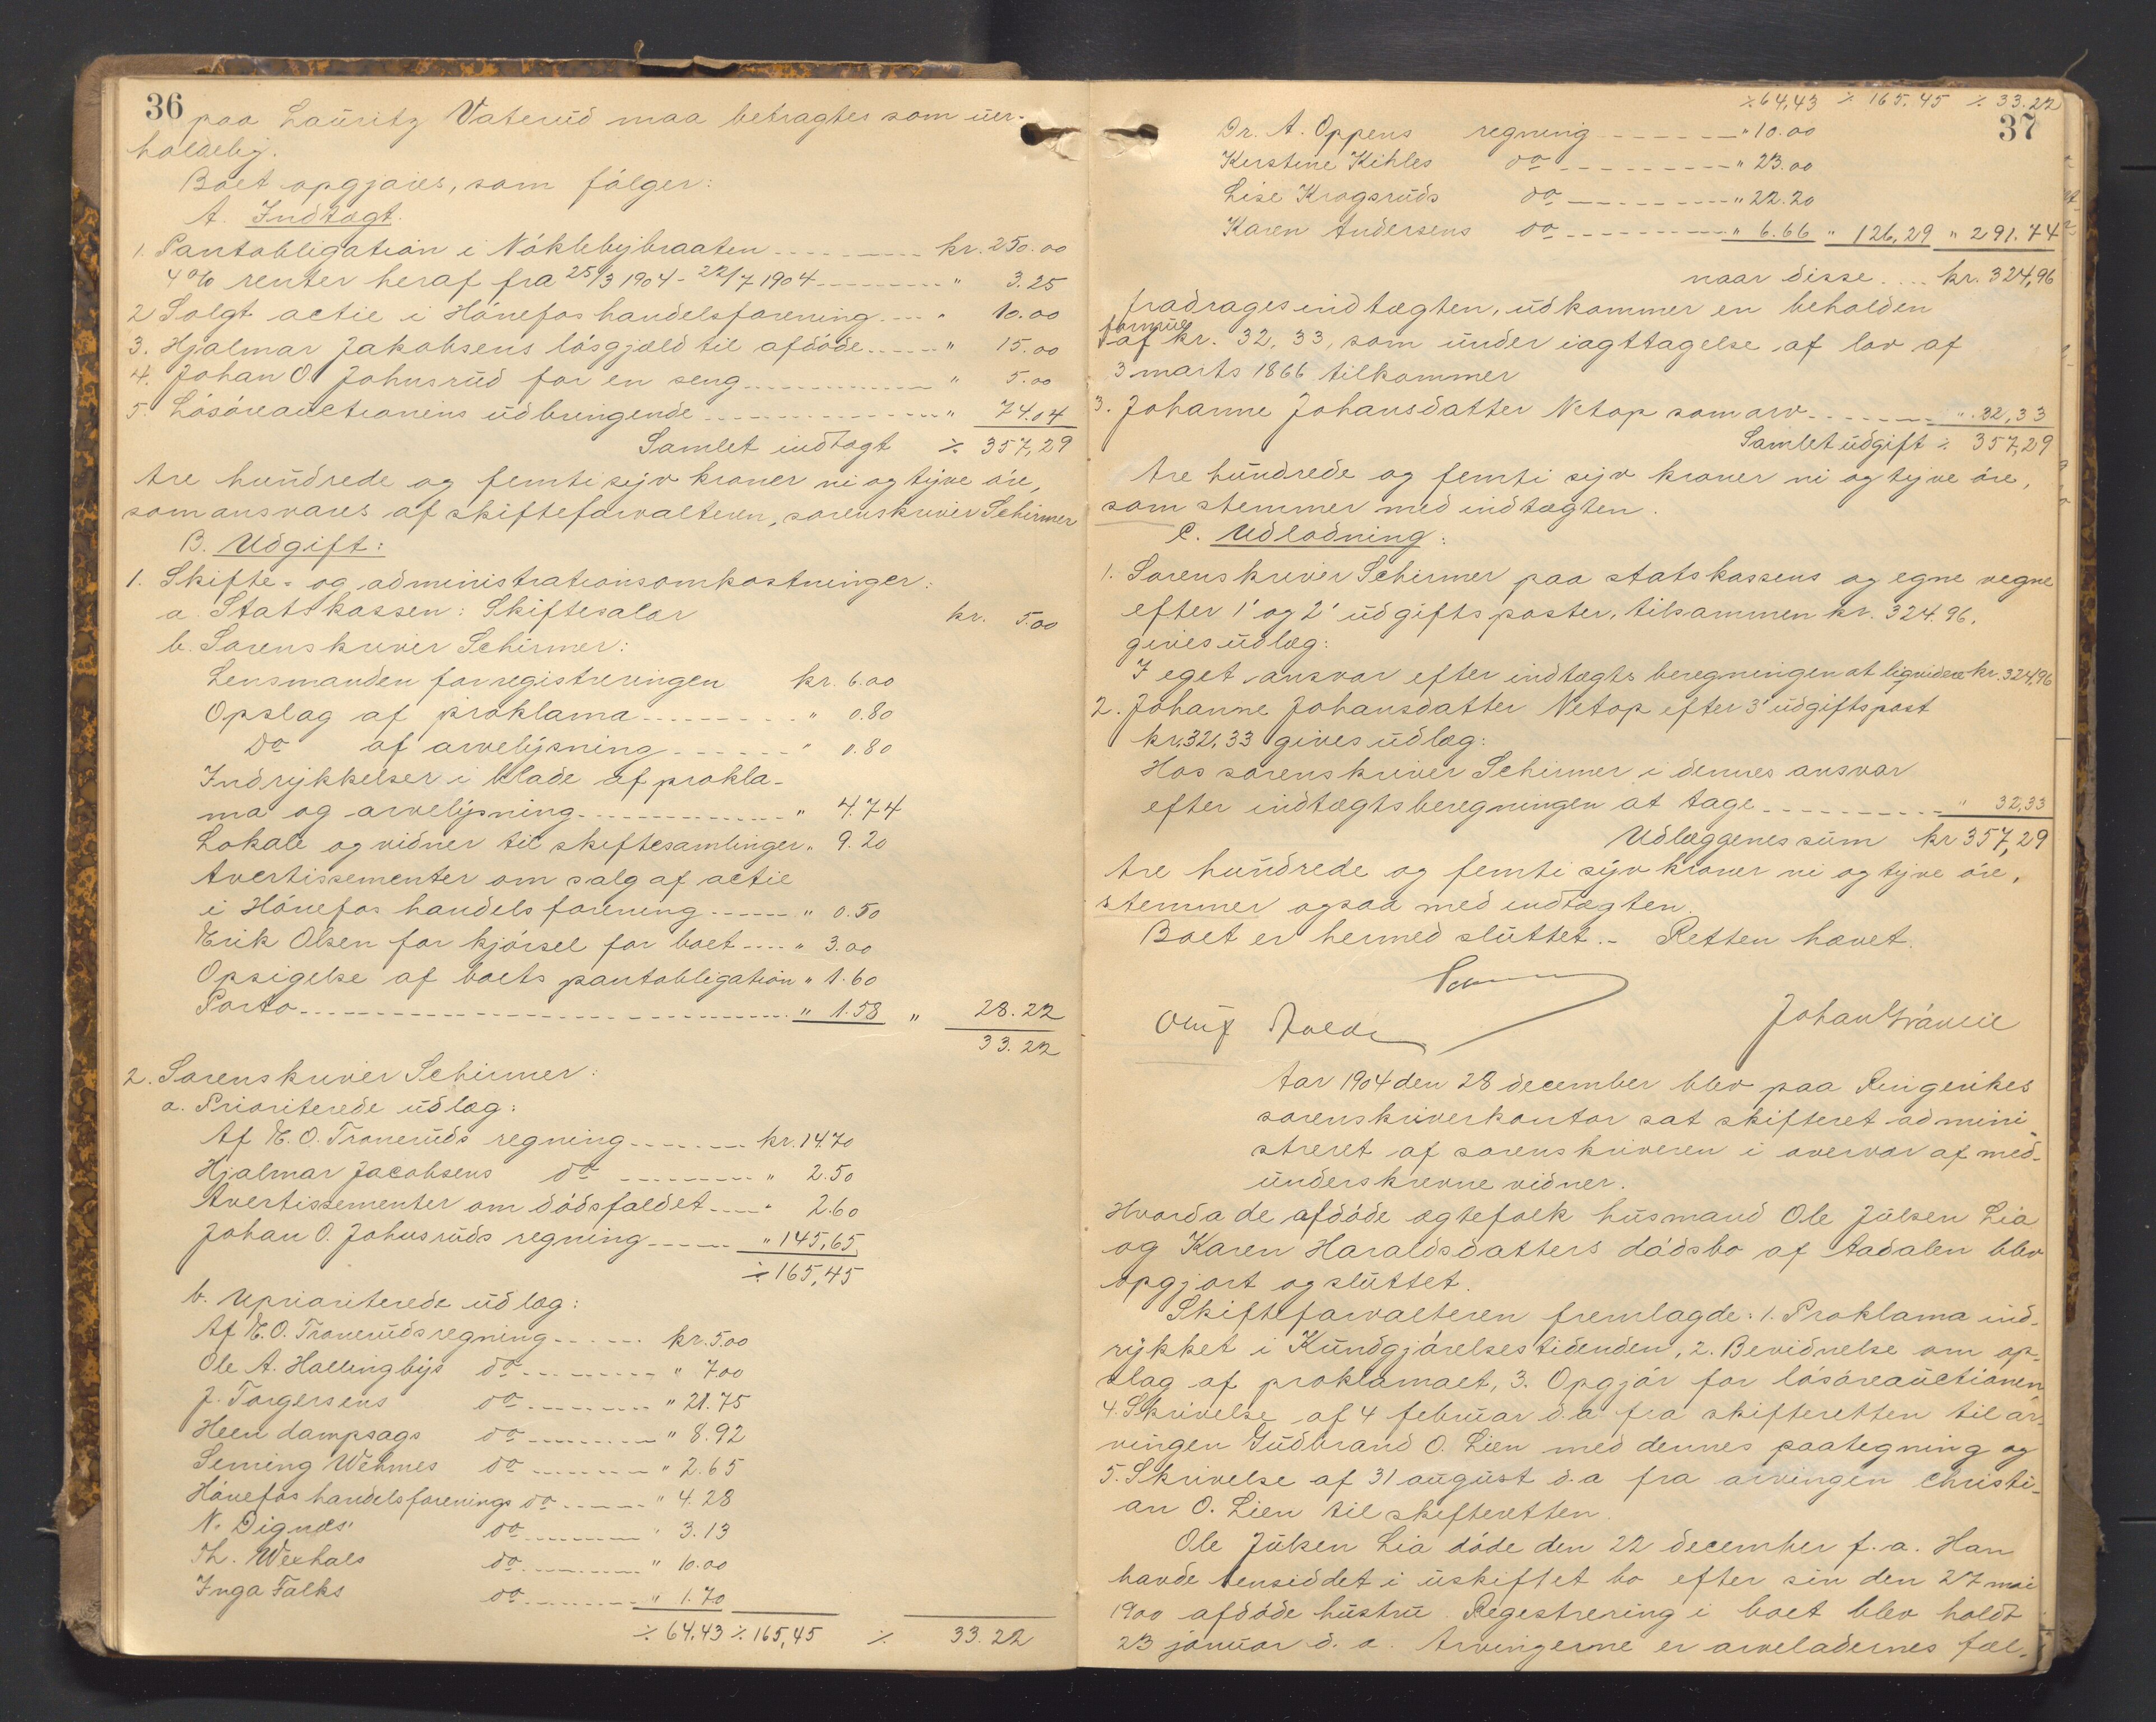 36
paa Lauritz Vaterud maa betragtes som uer-
holdelig.
Boet opgjøres, som følger:
A. Indtægt.
1. Pantobligation i Nøklebybraaten kr. 250.00
4% renter heraf fra 25/3 1904 - 22/7 1904 " 3.25
2 Solgt actie i Hønefos handelsforening " 10.00
3. Hjalmar Jakobsens løsgjæld til afdøde " 15.00
4. Johan O. Johnsrud for en seng " 5.00
5. Løsøreauctionens udbringende " 74.04
Samlet indtægt ⁒ 357,29
tre hundrede og femti syv kroner ni og tyve øre,
som ansvares af skifteforvalteren, sorenskriver Schirmer
B. Udgift:
1. Skifte- og administrationsomkostninger:
a. Statskassen: Skiftesalær kr. 5.00
b. Sorenskriver Schirmer:
Lensmanden for registreringen kr. 6.00
Opslag af proklama " 0.80
Do af arvelysning " 0.80
Indrykkelser i blade af prokla-
ma og arvelysning " 4.74
Lokale og vidner til skiftesamlinger " 9.20
Avertissementer om salg af actie
i Hønefos handelsforening " 0.50
Erik Olsen for kjørsel for boet " 3.00
Opsigelse af boets pantobligation " 1.60
Porto " 1.58 " 28.22
33.22
2. Sorenskriver Schirmer:
a. Prioriterede udlæg:
Af E. O. Troneruds regning kr. 14.70
Hjalmar Jacobsens do " 2.50
Avertissementer om dødsfaldet " 2.60
Johan O. Johnsruds regning " 145,65
⁒ 165,45
b. Uprioriterede udlæg:
Af E. O. Troneruds regning kr. 5.00
Ole A. Hallingbys do " 7.00
J. Torgersens do " 21.75
Heen dampsags do " 8.92
Seming Wehmes do " 2.65
Hønefos handelsforenings do " 4.28
N. Dignæs' do " 3.13
Th. Wexhals do " 10.00
Inga Falks do " 1.70
⁒ 64,43 ⁒ 165,45 ⁒ 33.22
⁒ 64,43 ⁒ 165,45 ⁒ 33.22
37
Dr. A. Oppens regning " 10.00
Kerstine Kihles do " 23.00
Lise Krogsruds do " 22.20
Karen Andersens do " 6.66 " 126,29 " 291.74
naar disse .... kr. 324,96
fradrages indtægten, udkommer en beholden
formue
af kr. 32,33, som under iagttagelse af lov af
3 marts 1866 tilkommer
3. Johanne Johansdatter Netop som arv " 32,33
Samlet udgift ⁒ 357,29
tre hundrede og femti syv kroner ni og tyve øre,
som stemmer med indtægten.
C. Udlodning:
1. Sorenskriver Schirmer paa statskassens og egne vegne
efter 1' og 2' udgiftsposter, tilsammen kr. 324.96,
gives udlæg:
I eget ansvar efter indtægtsberegningen at liqvidere kr. 324,96
2. Johanne Johansdatter Netop efter 3' udgiftspost
kr. 32,33 gives udlæg:
Hos sorenskriver Schirmer i dennes ansvar
efter indtægtsberegningen at tage " 32,33
Udlæggenes sum kr 357,29
tre hundrede og femti syv kroner ni og tyve øre,
stemmer ogsaa med indtægten.
Boet er hermed sluttet. - Retten hævet.
Oluf
Johan
Aar 1904 den 28 december blev paa Ringerikes
sorenskriverkontor sat skifteret admini-
streret af sorenskriveren i overvær af med-
underskrevne vidner.
Hvorda de afdøde ægtefolk husmand Ole Julsen Lia
og Karen Haraldsdatters dødsbo af Aadalen blev
opgjort og sluttet.
Skifteforvalteren fremlagde: 1. Proklama ind-
rykket i Kundgjørelsestidenden, 2. Bevidnelse om op-
slag af proklamaet, 3. Opgjør for løsøreauctionen,
4. Skrivelse af 4 februar d.a. fra skifteretten til ar-
vingen Gudbrand O. Lien med dennes paategning og
5. Skrivelse af 31 august d.a fra arvingen Christi-
an O. Lien til skifteretten.
Ole Julsen Lia døde den 22 december f.a. Han
havde hensiddet i uskiftet bo efter sin den 27 mai
1900 afdøde hustru. Registrering i boet blev holdt
23 januar d.a. Arvingerne er arveladernes fæl-